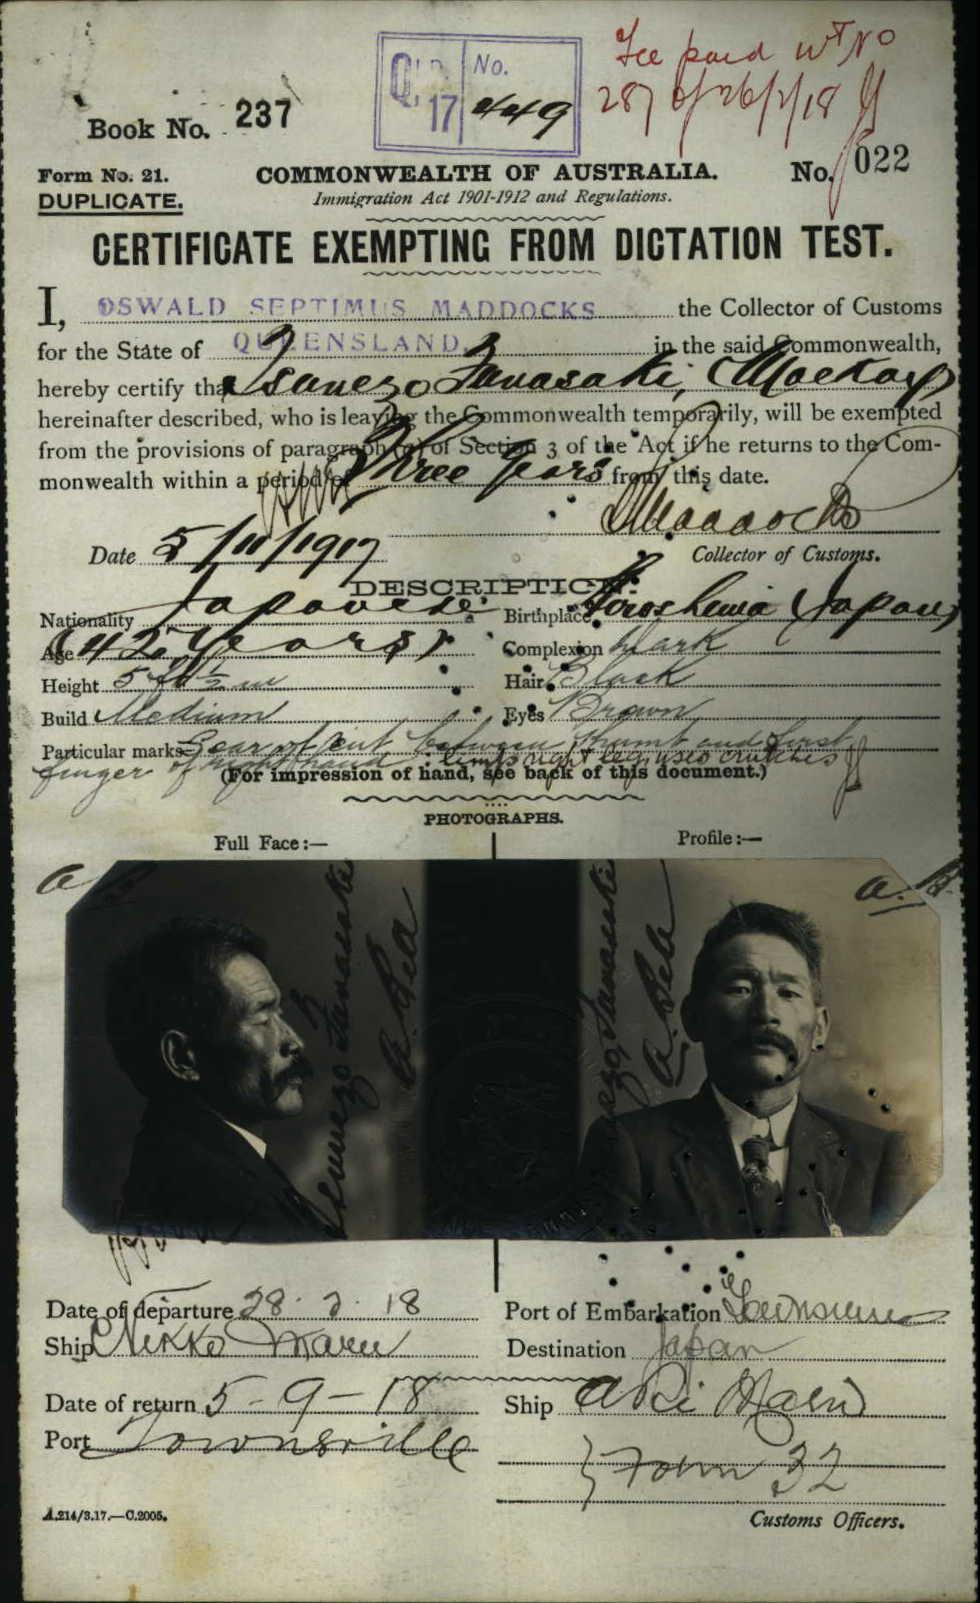 Fee paid Wt No
287 of 26/2/18
QLD. 17 No. 449
Book No. 237
Form No. 21.
COMMONWEALTH OF AUSTRALIA.
No. 022
DUPLICATE.
Immigration Act 1901-1912 and Regulations.
CERTIFICATE EXEMPTING FROM DICTATION TEST.
I, OSWALD SEPTIMUS MADDOCKS the Collector of Customs
for the State of QUEENSLAND. in the said Commonwealth,
hereby certify that Tsunezo Tanasaki, (Mackay)
hereinafter described, who is leaving the Commonwealth temporarily, will be exempted
from the provisions of paragraph (a) of Section 3 of the Act if he returns to the Com-
monwealth within a period of Three Years from this date.
Date 5/11/1917
Collector of Customs.
DESCRIPTION.
Nationality Japanese Birthplace Hiroshima (Japan)
Age (42 Years) Complexion Dark
Height 5 ft ½ in Hair Black
Build Medium Eyes Brown
Particular marks Scar of cut between thumb and first
finger of right hand limps right leg uses crutches
(For impression of hand, see back of this document.)
PHOTOGRAPHS.
Full Face:— Profile:—
Tsunezo Tanasaki
A. Rea
Tsunezo Tanasaki
A. Rea
Date of departure 28.2.18 Port of Embarkation Townsville
Ship Nikko Maru Destination Japan
Date of return 5-9-18 Ship Aki Maru
Port Townsville
Form 32
A.214/3.17.—C.2005.
Customs Officers.